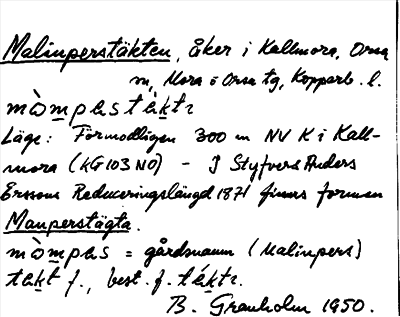 Malinperstäkten, åker i Kallmora, Orsa
sn, Mora o Orsa tg, Kopparb. l.
mòmpɐstɛ́ktɛ
Läge: Förmodligen 300 m NV K i Kall-
mora (KG 103 NO) – I Styfvers Anders
Erssons Reduceringslängd 1871 finnes formen
Manperstägta.
mòmpɐs = gårdsnamn (Malinpers)
tɛkt f., best. f. tɛ́ktɛ.
B. Granholm 1950.